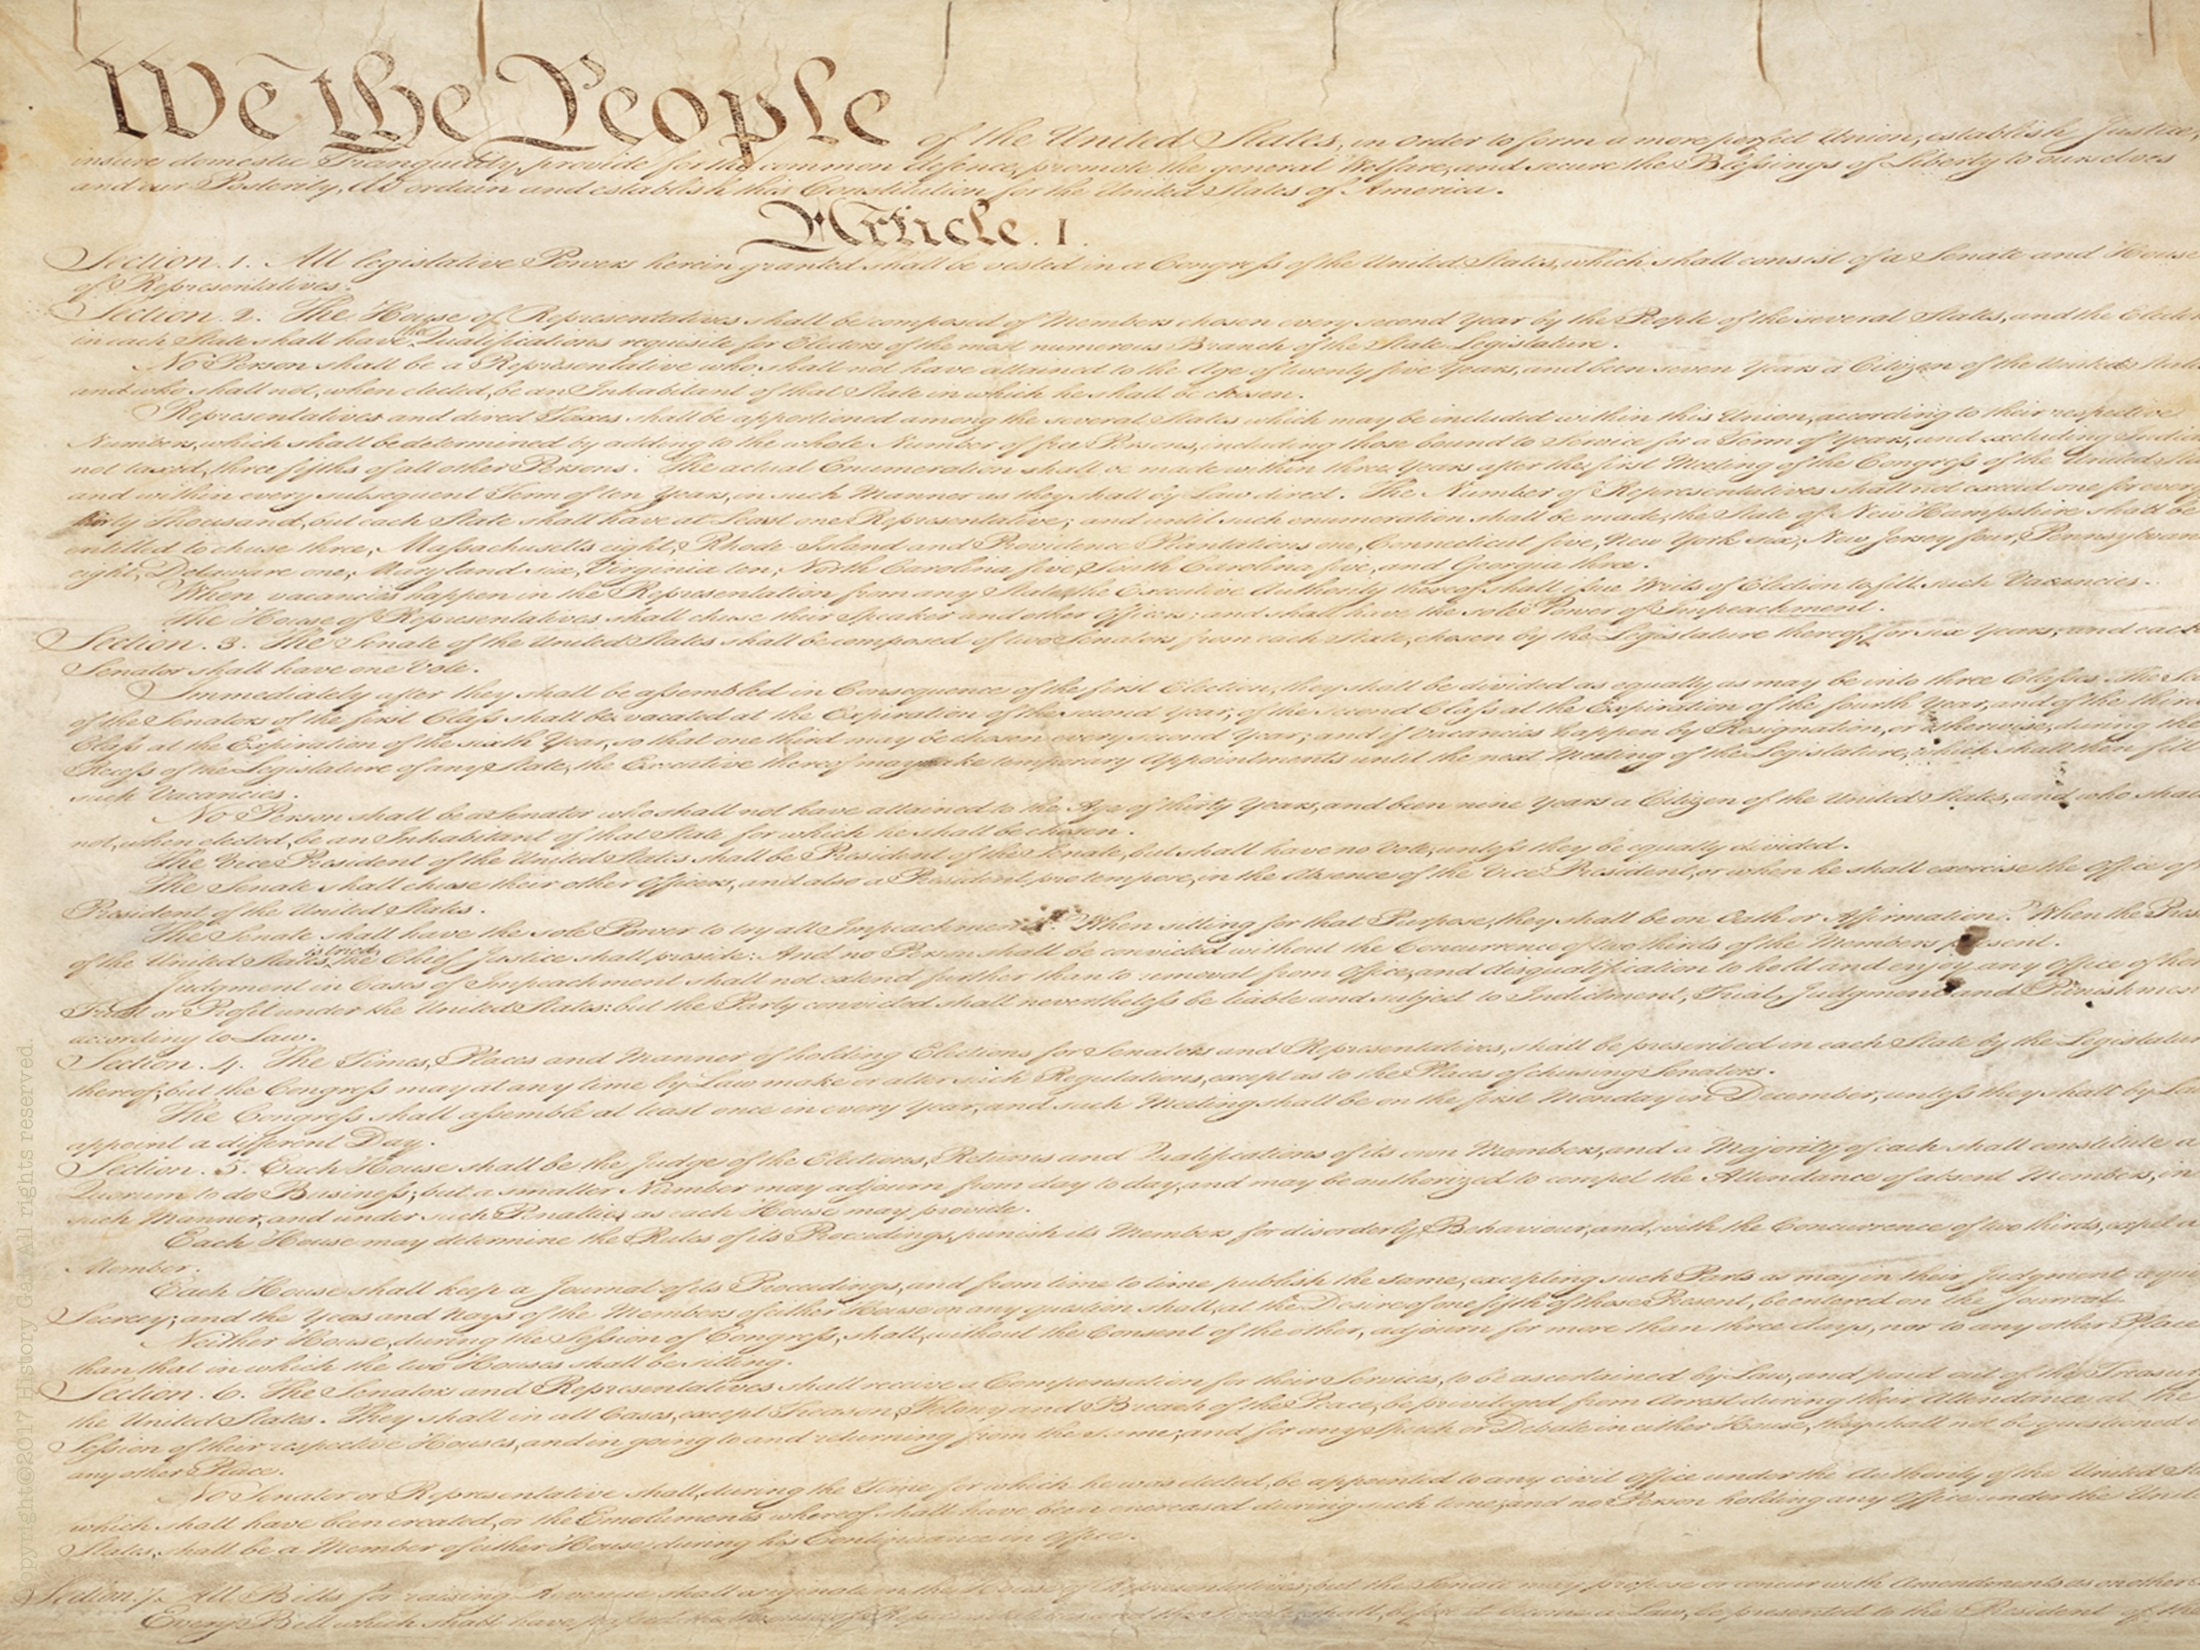 We the People of the United States, in Order to form a more perfect Union, establish Justice,
insure domestic Tranquility, provide for the common defence, promote the general Welfare, and secure the Blessings of Liberty to ourselves
and our Posterity, do ordain and establish this Constitution for the United States of America.
Article. I.
Section. 1. All legislative Powers herein granted shall be vested in a Congress of the United States, which shall consist of a Senate and House
of Representatives.
Section. 2. The House of Representatives shall be composed of Members chosen every second Year by the People of the several States, and the
in each State shall have the Qualifications requisite for Electors of the most numerous Branch of the State Legislature.
No Person shall be a Representative who shall not have attained to the Age of twenty five Years, and been seven Years a Citizen of the United
and who shall not, when elected, be an Inhabitant of that State in which he shall be chosen.
Representatives and direct Taxes shall be apportioned among the several States which may be included within this Union, according to their respective
Numbers, which shall be determined by adding to the whole Number of free Persons, including those bound to Service for a Term of Years, and excluding
not taxed, three fifths of all other Persons. The actual Enumeration shall be made within three Years after the first Meeting of the Congress of the United
and within every subsequent Term of ten Years, in such Manner as they shall by Law direct. The Number of Representatives shall not exceed one for every
thirty Thousand, but each State shall have at Least one Representative; and until such enumeration shall be made, the State of New Hampshire shall be
entitled to chuse three, Massachusetts eight, Rhode-Island and Providence Plantations one, Connecticut five, New York six, New Jersey four,
eight, Delaware one, Maryland six, Virginia ten, North Carolina five, South Carolina five, and Georgia three.
When vacancies happen in the Representation from any State, the Executive Authority thereof shall issue Writs of Election to fill such Vacancies.
The House of Representatives shall chuse their Speaker and other Officers; and shall have the sole Power of Impeachment.
Section. 3. The Senate of the United States shall be composed of two Senators from each State, chosen by the Legislature thereof, for six Years; and each
Senator shall have one Vote.
Immediately after they shall be assembled in Consequence of the first Election, they shall be divided as equally as may be into three Classes. The
of the Senators of the first Class shall be vacated at the Expiration of the second Year, of the second Class at the Expiration of the fourth Year, and of the third
Class at the Expiration of the sixth Year, so that one third may be chosen every second Year; and if Vacancies happen by Resignation, or otherwise, during the
Recess of the Legislature of any State, the Executive thereof may make temporary Appointments until the next Meeting of the Legislature, which shall then fill
such Vacancies.
No Person shall be a Senator who shall not have attained to the Age of thirty Years, and been nine Years a Citizen of the United States, and who shall
not, when elected, be an Inhabitant of that State for which he shall be chosen.
The Vice President of the United States shall be President of the Senate, but shall have no Vote, unless they be equally divided.
The Senate shall chuse their other Officers, and also a President pro tempore, in the Absence of the Vice President, or when he shall exercise the Office of
President of the United States.
The Senate shall have the sole Power to try all Impeachments. When sitting for that Purpose, they shall be on Oath or Affirmation. When the
of the United States is tried, the Chief Justice shall preside: And no Person shall be convicted without the Concurrence of two thirds of the Members present.
Judgment in Cases of Impeachment shall not extend further than to removal from Office, and disqualification to hold and enjoy any Office of
Trust or Profit under the United States: but the Party convicted shall nevertheless be liable and subject to Indictment, Trial, Judgment and
according to Law.
Section. 4. The Times, Places and Manner of holding Elections for Senators and Representatives, shall be prescribed in each State by the
thereof; but the Congress may at any time by Law make or alter such Regulations, except as to the Places of chusing Senators.
The Congress shall assemble at least once in every Year, and such Meeting shall be on the first Monday in December, unless they shall by
appoint a different Day.
Section. 5. Each House shall be the Judge of the Elections, Returns and Qualifications of its own Members, and a Majority of each shall constitute a
Quorum to do Business; but a smaller Number may adjourn from day to day, and may be authorized to compel the Attendance of absent Members, in
such Manner, and under such Penalties as each House may provide.
Each House may determine the Rules of its Proceedings, punish its Members for disorderly Behaviour, and, with the Concurrence of two thirds, expel a
Member.
Each House shall keep a Journal of its Proceedings, and from time to time publish the same, excepting such Parts as may in their Judgment
Secrecy; and the Yeas and Nays of the Members of either House on any question shall, at the Desire of one fifth of those Present, be entered on the Journal.
Neither House, during the Session of Congress, shall, without the Consent of the other, adjourn for more than three days, nor to any other Place
than that in which the two Houses shall be sitting.
Section. 6. The Senators and Representatives shall receive a Compensation for their Services, to be ascertained by Law, and paid out of the
the United States. They shall in all Cases, except Treason, Felony and Breach of the Peace, be privileged from Arrest during their Attendance at the
Session of their respective Houses, and in going to and returning from the same; and for any Speech or Debate in either House, they shall not be questioned
any other Place.
No Senator or Representative shall, during the Time for which he was elected, be appointed to any civil Office under the Authority of the United
which shall have been created, or the Emoluments whereof shall have been encreased during such time; and no Person holding any Office under the
States, shall be a Member of either House during his Continuance in Office.
Section. 7. All Bills for raising Revenue shall originate in the House of Representatives; but the Senate may propose or concur with Amendments as on other
Every Bill which shall have passed the House of Representatives and the Senate, shall, before it become a Law, be presented to the President of the
Copyright©2017 History Gal. All rights reserved.